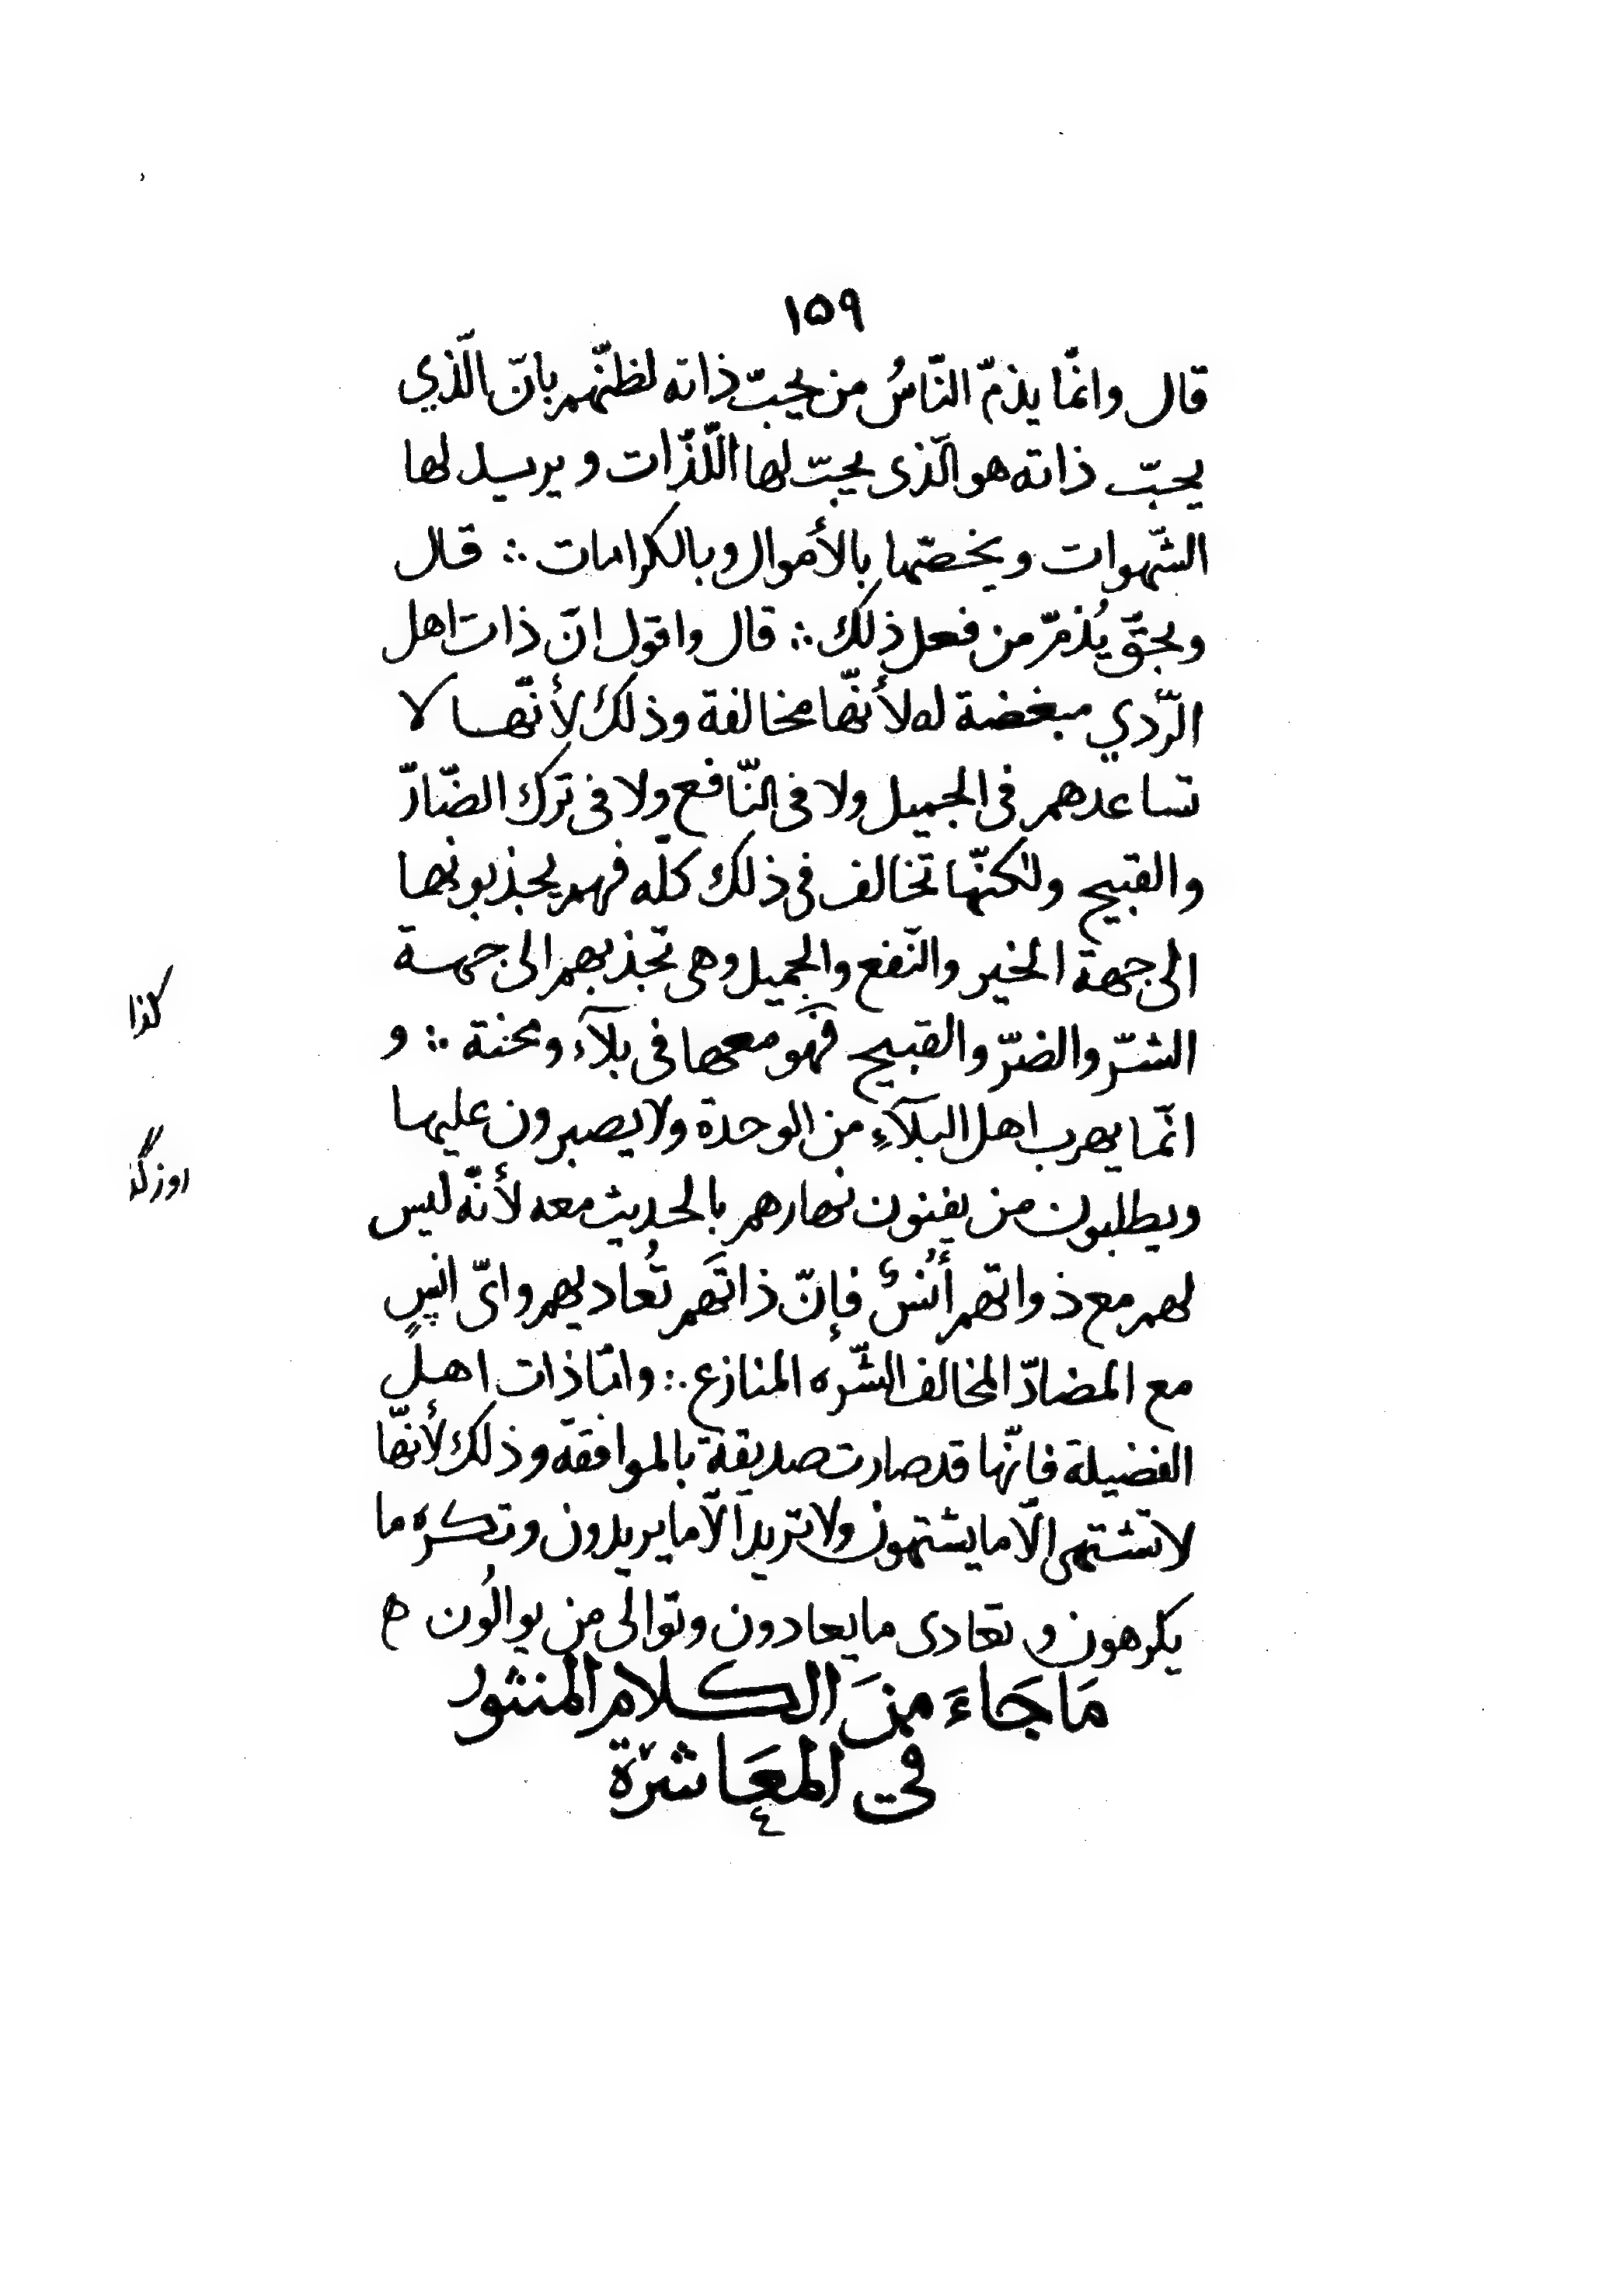 ۱۵۹
قال وانّما يذمّ النّاسُ من يحبّ ذاته لظنّهم بانّ الّذي
يحبّ ذاته هو الّذى يحبّ لها اللّذّات و يريد لها
الشّهوات ويخصّها بالأموال وبالكرامات ∴ قال
وبحقّ يُذمّ من فعل ذلك ∴ قال واقول انّ ذات اهل
الرّدي مبغضة له لأنّها مخالفة وذلك لأنّها لا
تساعدهم فى الجميل ولا فى النّافع ولا فى ترك الضّارّ
والقبيح ولكنّها تخالف فى ذلك كلّه فهم يجذبونها
الى جهة الخير والنّفع والجميل وهى تجذبهم الى جهة
الشّرّ والضرّ والقبيح فهو معها فى بلآء ومحنة ∴ و
كذا
انّما يهرب اهل البلآءِ من الوحدة ولا يصبرون عليها
ويطلبون من يفنون نهارهم بالحديث معه لأنّه ليس
لهم مع ذواتهم أُنسٌ فإنّ ذاتَهم تُعاديهم واىّ انسٍ
مع المضادّ المخالف الشّره المنازع ∴ وامّا ذات اهل
الفضيلة فانّها قد صارت صديقة بالموافقة وذلك لأنّها
لا تشتهى الّا ما يشتهون ولا تريد الّا ما يريدون وتكره ما
يكرهون و تعادى ما يعادون وتوالى من يوالُون ه
مَا جَاءَ منَ الكلام المنثور
في المعَاشرَة